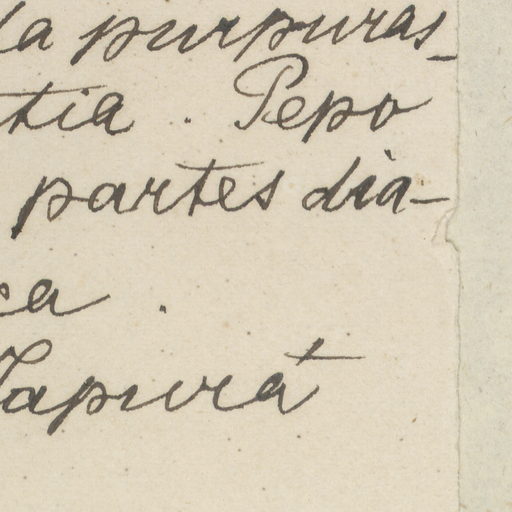 la purpuras-
tia. Pepo
partes dia-
ca.
Japurá